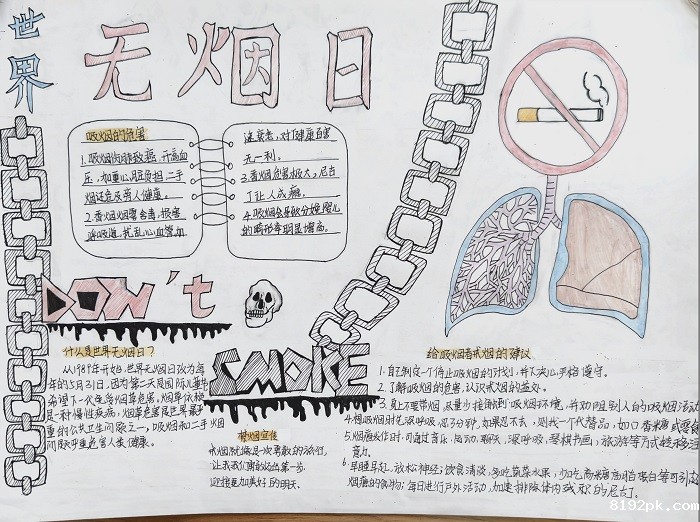 世界
无烟日
吸烟的危害
1.吸烟伤肺致癌,升高血
压,加重心脏负担,二手
烟还危及旁人健康。
2.香烟烟雾含毒,损害
呼吸道,扰乱心血管加
速衰老,对健康百害
无一利。
3.香烟危害极大,尼古
丁让人成瘾。
4.吸烟会导致分娩婴儿
的畸形率明显增高。
DON't
SMOKE
什么是世界无烟日?
从1989年开始,世界无烟日改为每
年的5月31日,因为第二天是国际儿童节
希望下一代免受烟草危害。烟草依赖
是一种慢性疾病,烟草危害是世界最严
重的公共卫生问题之一,吸烟和二手烟
问题严重危害人类健康。
禁烟宣传
戒烟就像是一次勇敢的旅行
让我们勇敢迈出第一步
迎接更加美好的明天。
给吸烟者戒烟的建议
1.自己制定一个停止吸烟的计划,并下决心严格遵守。
2.了解吸烟的危害,认识戒烟的益处。
3.身上不要带烟,尽量少接触到吸烟环境,并劝阻别人的吸烟活动
4.想吸烟时先深呼吸,忍5分钟,如果忍不去,则找一个代替品,如口香糖或零食
5.烟瘾发作时,可通过音乐、运动、聊天、深呼吸、琴棋书画、旅游等方式转移注
意力。
6.早睡早起,放松神经;饮食清淡,多吃蔬菜水果,少吃高
烟瘾的食物;每日进行户外活动,加速排除体内残积的尼古丁。
8192pk.com